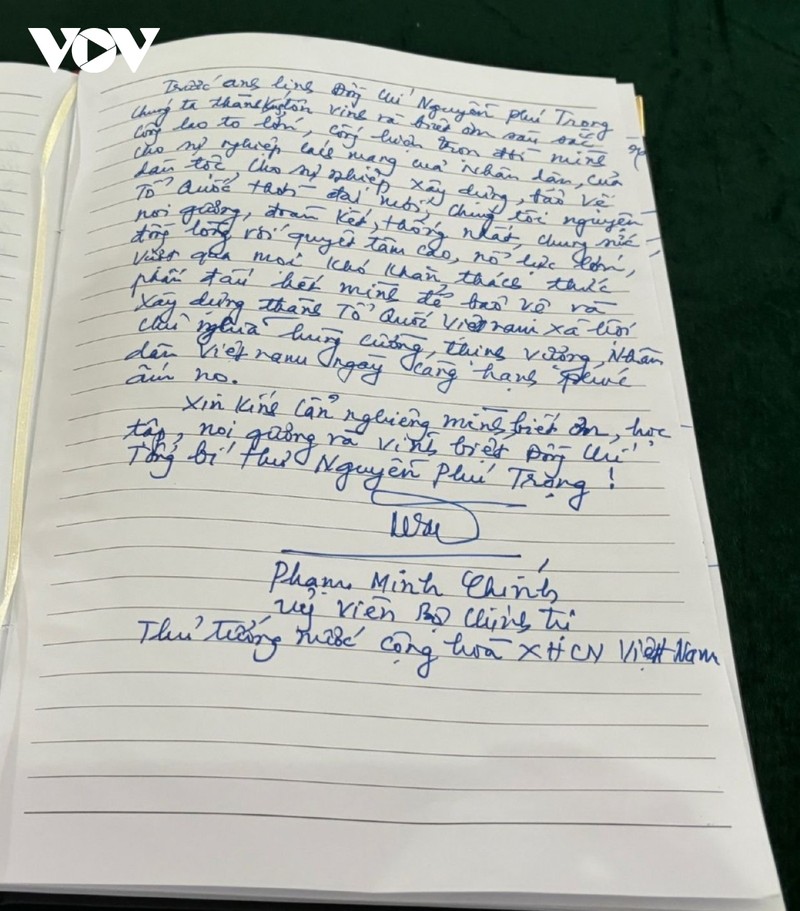 VOV
Trước anh linh Đồng chí Nguyễn Phú Trọng
chúng ta thành kính tôn vinh và biết ơn sâu sắc
công lao to lớn, cống hiến trọn đời mình
cho sự nghiệp cách mạng của Nhân dân, của
dân tộc, cho sự nghiệp xây dựng, bảo vệ
Tổ Quốc thời đại mới, chúng tôi nguyện
noi gương, đoàn kết, thống nhất, chung sức
đồng lòng với quyết tâm cao, nỗ lực lớn,
vượt qua mọi khó khăn thách thức
phấn đấu hết mình để bảo vệ và
xây dựng thành Tổ Quốc Việt nam xã hội
chủ nghĩa hùng cường, thịnh vượng, Nhân
dân Việt nam ngày càng hạnh phúc
ấm no.
Xin kính cẩn nghiêng mình, biết ơn, học
tập, noi gương và vĩnh biệt Đồng chí
Tổng bí thư Nguyễn Phú Trọng!
Phạm Minh Chính
Uỷ viên Bộ Chính trị
Thủ tướng nước cộng hoà XHCN Việt Nam